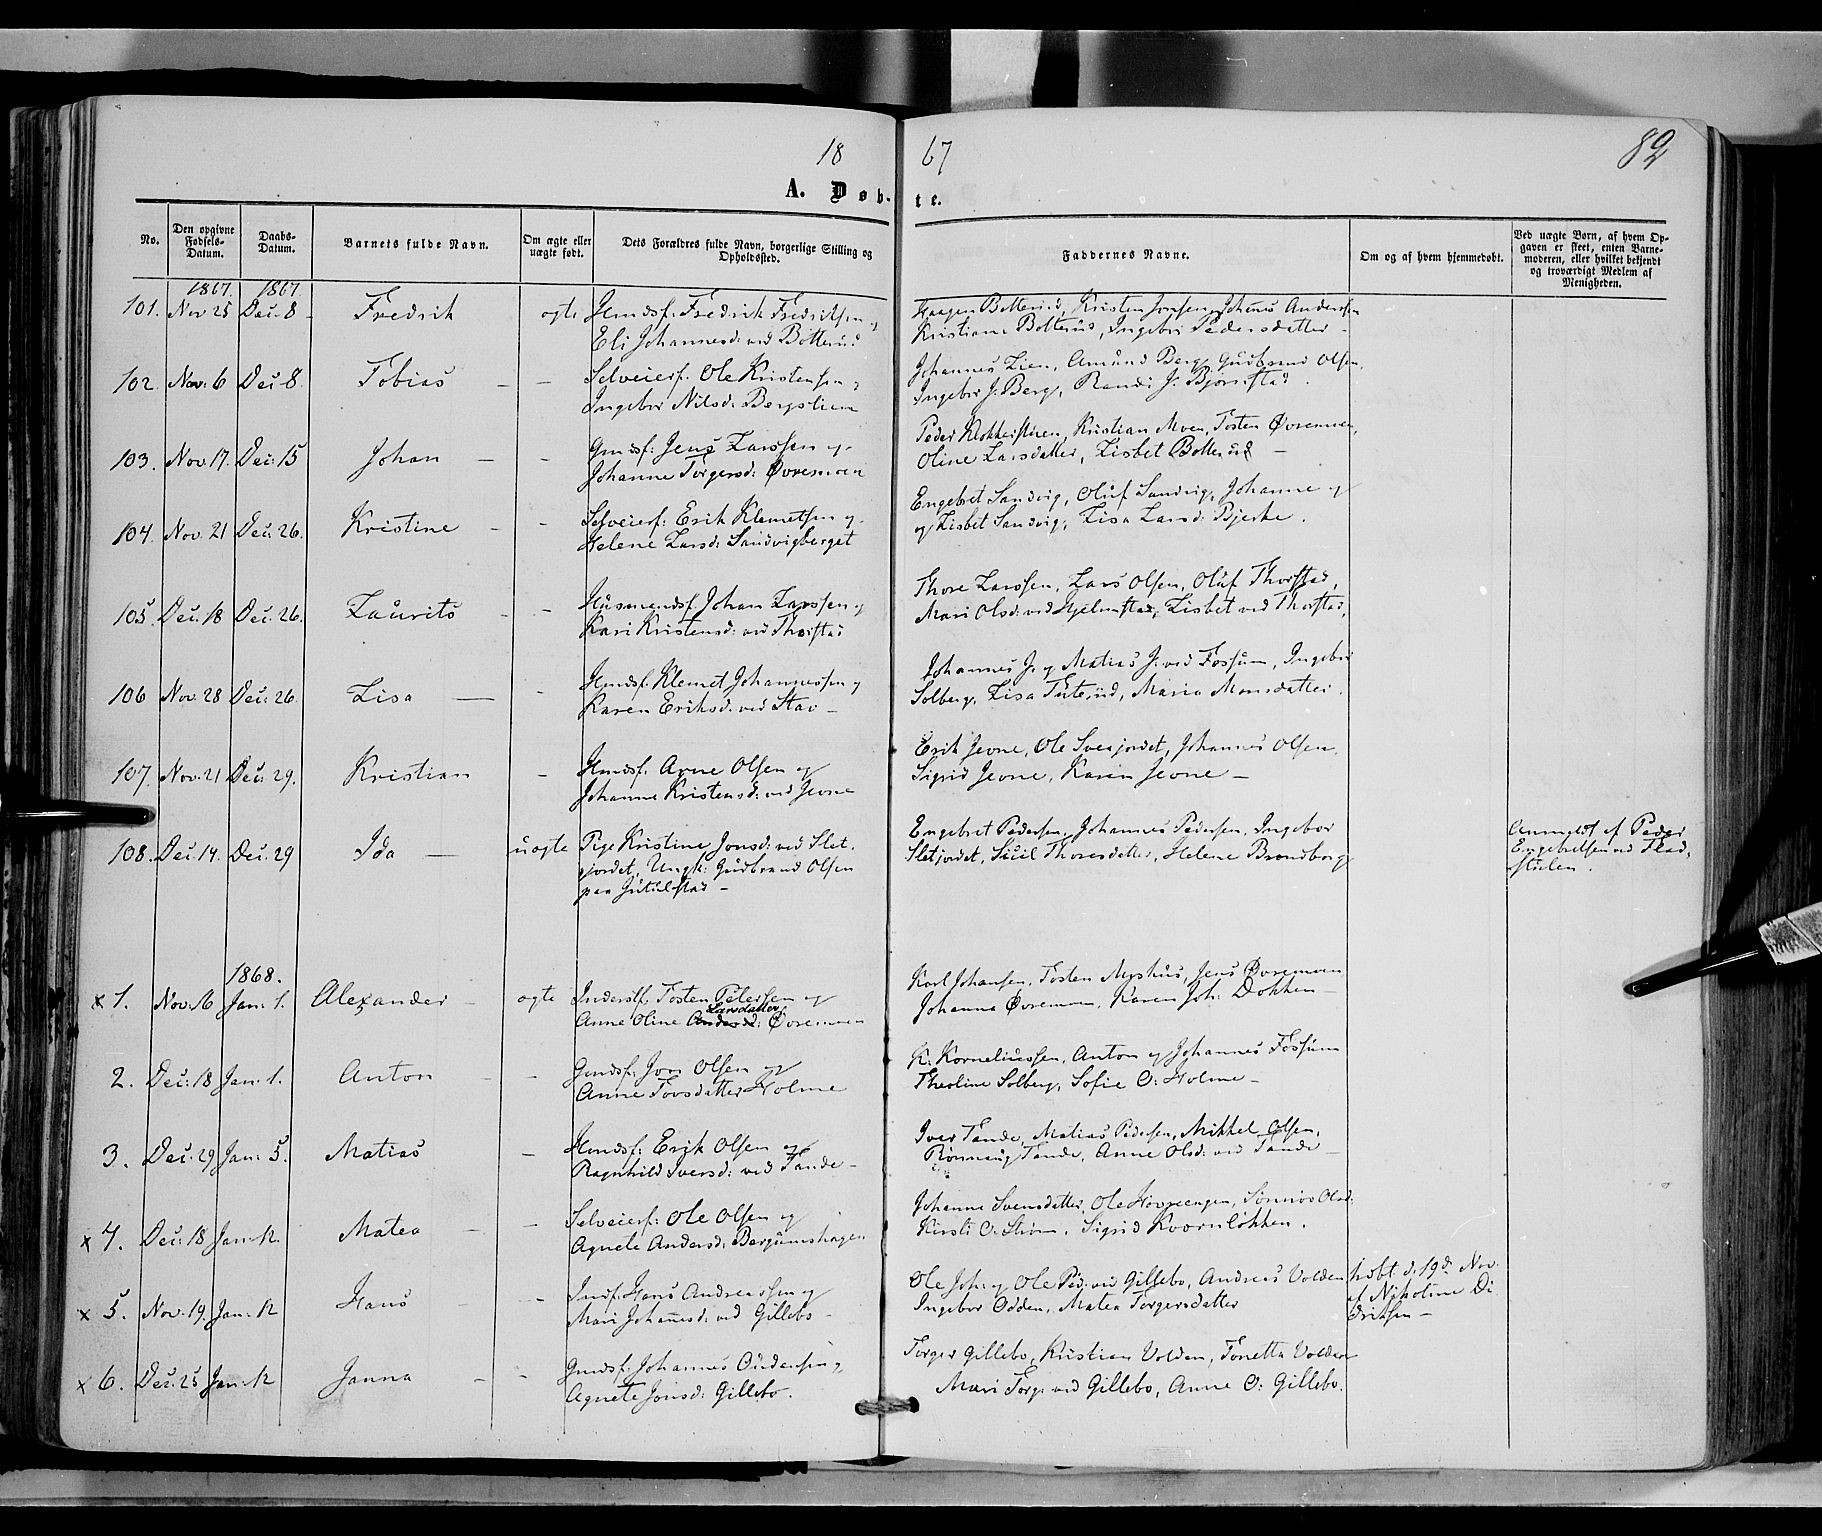 18 67
82
A. Døb- te.
No.
Den opgivne Fødsels-Datum.
Daabs-Datum.
Barnets fulde Navn.
Om ægte eller uægte født.
Dets Forældres fulde Navn, borgerlige Stilling og Opholdssted.
Faddernes Navne.
Om og af hvem hjemmedøbt.
Ved uægte Børn, af hvem Opgaven er skeet, enten Barnemoderen, eller hvilket bekjendt og troværdigt Medlem af Menigheden.
1867. 1867
101. Nov 25 Dec: 8 Fredrik ægte Hmdsf: Fredrik Fredriksen og
Eli Johannesd: ved Botterud
Haagen Botterud, Kristen Jonsen, Johannes Andersen
Kristiane Botterud, Ingebor Pedersdatter –
102. Nov: 6 Dec: 8 Tobias – – Selveierf. Ole Kristensen og
Ingebor Nilsd: Bergslien
Johannes Lien, Amund Berg, Gudbrand Olsen,
Ingebor J: Berg, Randi J: Bjørnstad.
103. Nov. 17. Dec: 15 Johan – – Gmdsf: Jens Larssen og
Johanne Torgersd: Øvremoen
Peder Klokkerstuen, Kristian Moen, Tosten Øvremoen,
Oline Larsdatter, Lisbet Botterud –
104. Nov. 21 Dec: 26. Kristine – – Selveierf: Erik Klemetsen og
Helene Larsd: Sandvigberget
Engebret Sandvig, Oluf Sandvig, Johanne og
og Lisbet Sandvig, Lisa Larsd: Bjerke.
105. Dec: 18 Dec: 26. Laurits – – Husmandsf. Johan Larssen og
Kari Kristensd: ved Thorstad
Thore Larssen, Lars Olsen, Oluf Thorstad,
Mari Olsd: ved Hjelmstad, Lisbet ved Thorstad.
106 Nov. 28 Dec: 26. Lisa – – Hmdsf: Klemet Johannessen og
Karen Eriksd: ved Stav –
Johannes J. og Matias J. ved Fossum, Ingebor
Solberg, Lisa Tuterud, Maria Monsdatter.
107. Nov. 21 Dec: 29. Kristian – Hmdsf: Arne Olsen og
Johanne Kristensd: ved Jevne
Erik Jevne, Ole Sveajordet, Johannes Olsen,
Sigrid Jevne, Karen Jevne –
108. Dec: 14. Dec: 29 Ida – uægte Pige Kristine Jonsd: ved Slet-
jordet, Ungk: Gudbrand Olsen
paa Jutulstad –
Engebret Pedersen, Johannes Pedersen, Ingebor
Sletjordet, Sicil Thoresdatter, Helene Brandborg
Anmeldt af Peder
Engebretsen ved Flad-
stulen.
1868.
x 1. Nov. 16 Jan: 1. Alexander – ægte Inderstf: Tosten Petersen og
Larsdatter
Anne Oline Andersd: Øvremoen
Karl Johansen, Tosten Myshus, Jens Øvremoen
Johanna Øvremoen, Karen Joh: Dokken –
2. Dec: 18 Jan: 1. Anton – – Gmdsf: Jon Olsen og
Anne Tovsdatter Holme
K: Korneliussen, Anton og Johannes Fossum
Theoline Solberg, Sofie O: Holme –
3. Dec: 29 Jan: 5. Matias – Hmdsf: Erik Olsen og
Ragnhild Iversd: ved Tande –
Iver Tande, Matias Pedersen, Mikkel Olsen,
Rønnaug Tande, Anne Olsd: ved Tande –
x 4. Dec: 18 Jan: 12. Matea – – Selveierf: Ole Olsen og
Agnete Andersd: Bergumshagen
Johanna Svensdatter, Ole Hovreengen, Sønnøv Olsd:
Kirsti O: Strøm, Sigrid Kvernløkken.
x 5. Nov. 19. Jan: 12 Hans – – Indf: Hans Andreassen og
Mari Johannesd: ved Gillebo –
Ole Joh: og Ole Ped: ved Gillebo, Andreas Volden
Ingebor Odden, Matea Torgersdatter
hdbt. d. 19d: Nov.
af Nikoline Di-
driksen –
x 6. Dec: 25 Jan: 12 Janna – – Gmdsf: Johannes Andersen og
Agnete Jonsd: Gillebo.
Torger Gillebo, Kristian Volden, Tonetta Volden
Mari Torg: ved Gillebo, Anne O: Gillebo.